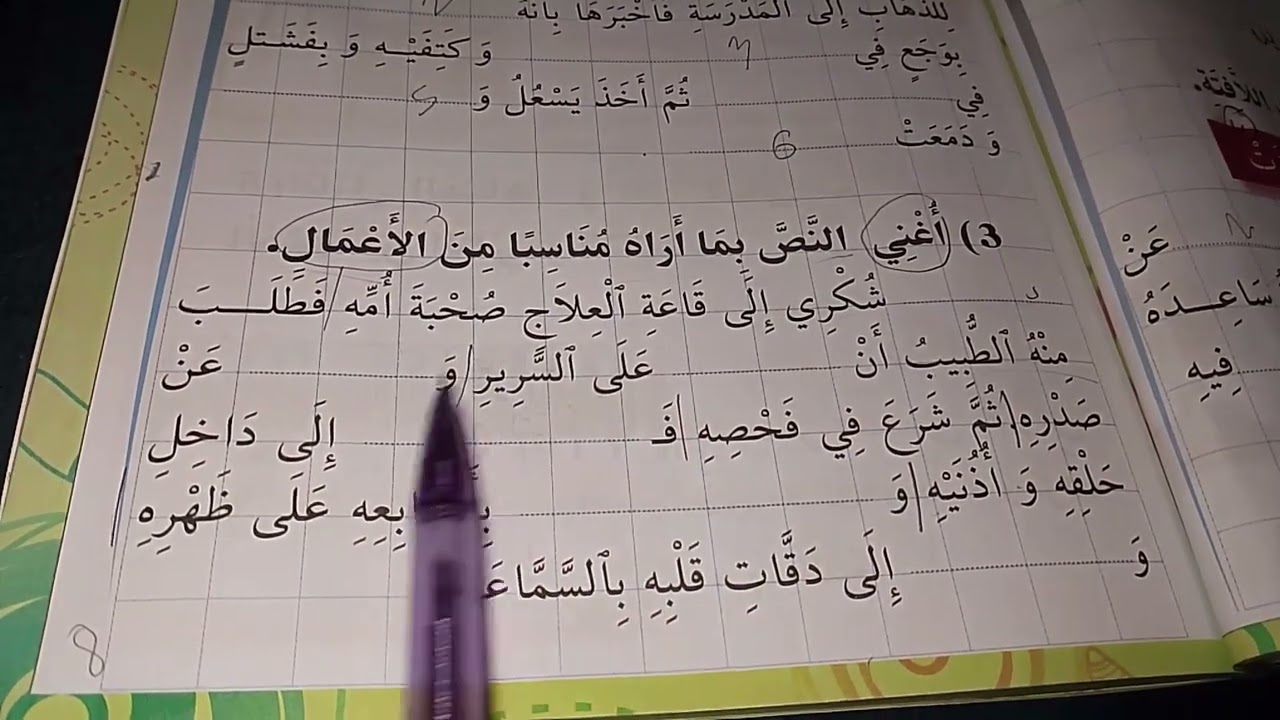 لِلذَّهَابِ إِلَى الْمَدْرَسَةِ فَأَخْبَرَهَا بِأَنَّهُ
بِوَجَعٍ فِي ............ وَ كَتِفَيْهِ وَ بِفَشَتلٍ
فِي ............ ثُمَّ أَخَذَ يَسْعُلُ وَ ............
وَ دَمَعَتْ ............ 6 ............ .
3) أُغْنِي النَّصَّ بِمَا أَرَاهُ مُنَاسِبًا مِنَ الأَعْمَالِ.
............ شُكْرِي إِلَى قَاعَةِ ٱلْعِلاَجِ صُحْبَةَ أُمِّهِ فَطَلَبَ
مِنْهُ ٱلطَّبِيبُ أَنْ ............ عَلَى ٱلسَّرِيرِ وَ ............ عَنْ
صَدْرِهِ ثُمَّ شَرَعَ فِي فَحْصِهِ فَـ ............ إِلَى دَاخِلِ
حَلْقِهِ وَ أُذُنَيْهِ وَ ............ عَلَى ظَهْرِهِ
وَ ............ إِلَى دَقَّاتِ قَلْبِهِ
8
اللاَّفِتَة.
عَنْ
فِيهِ